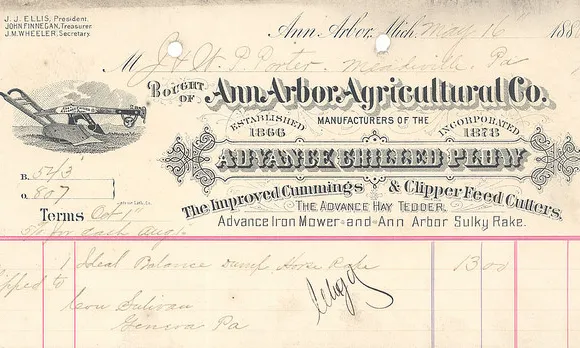 J. J. ELLIS, President.
JOHN FINNEGAN, Treasurer.
J. M. WHEELER, Secretary.
Ann Arbor, Mich. May 16 188
M J & W. P. Porter
Meadville, Pa
BOUGHT OF Ann Arbor Agricultural Co.
MANUFACTURERS OF THE
ESTABLISHED 1866
INCORPORATED 1878
ADVANCE CHILLED PLOW
The Improved Cummings & Clipper Feed Cutters,
THE ADVANCE HAY TEDDER,
Advance Iron Mower and Ann Arbor Sulky Rake.
B. 543
O. 807
Terms Oct 1st
5% for cash Aug 1st
1 Ideal Balance Dump Horse Rake 13 00
to
Leon Sulivan
Geneva Pa